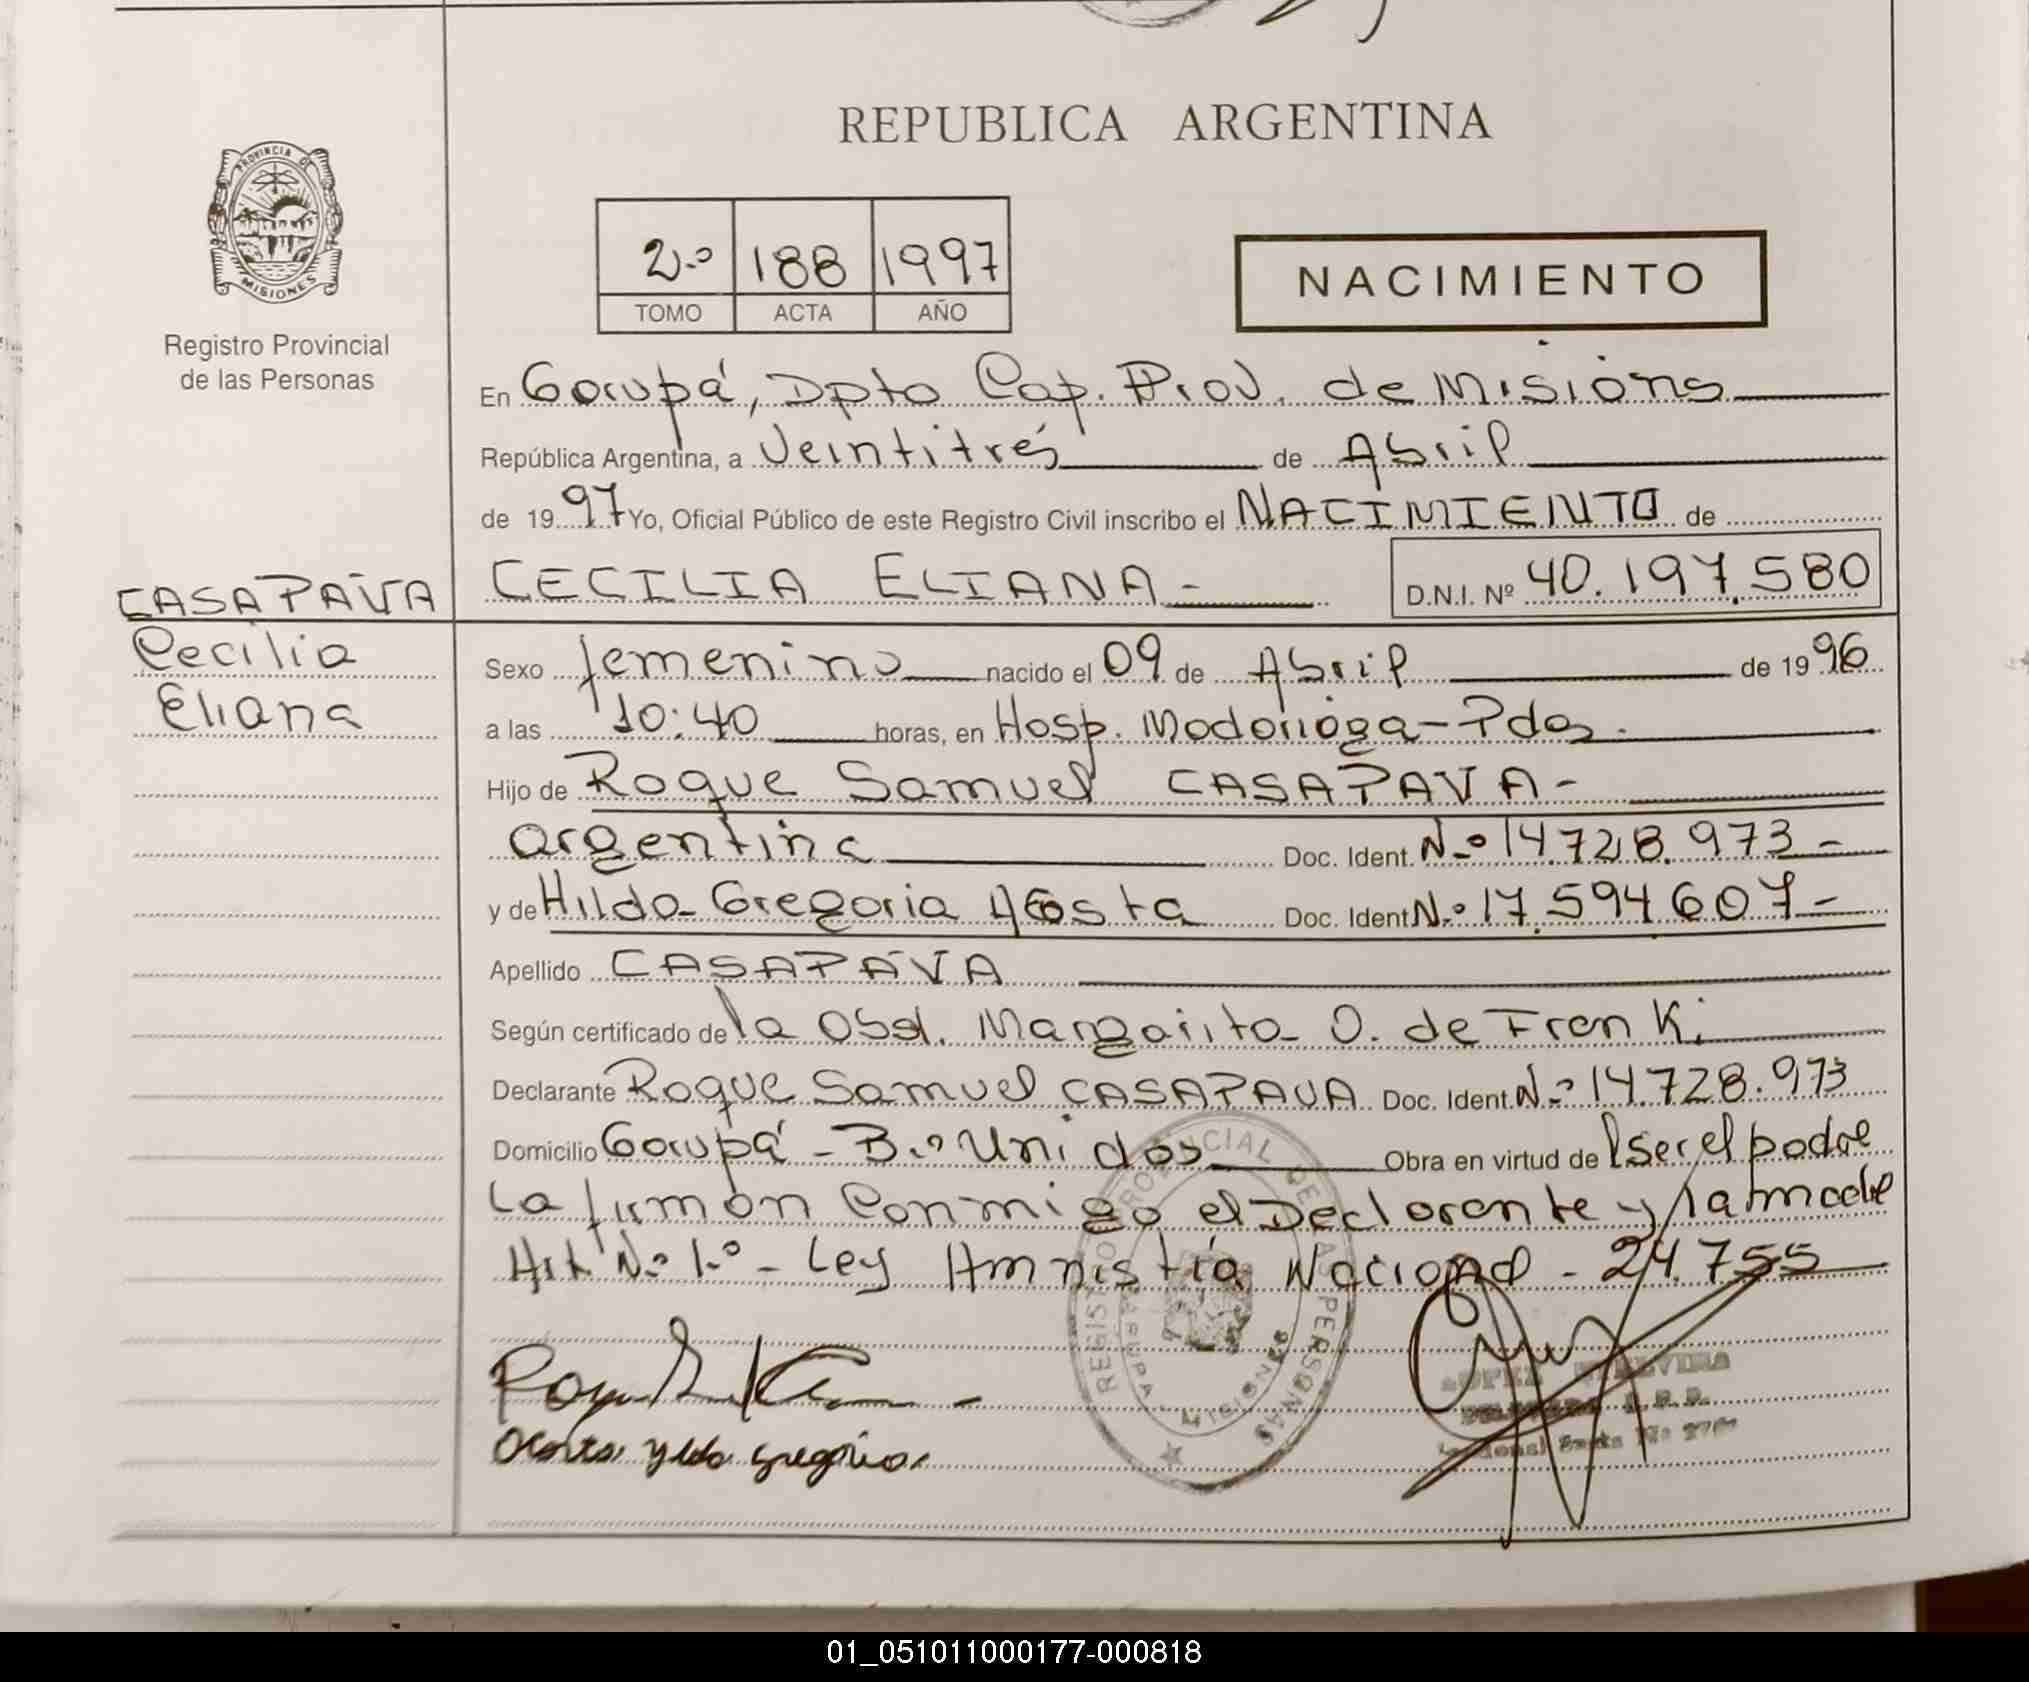 REPUBLICA ARGENTINA
PROVINCIA DE
MISIONES
Registro Provincial
de las Personas
2.º 188 1997
TOMO ACTA AÑO
NACIMIENTO
En Garupá, Dpto Cap. Prov. de Misions
República Argentina, a Veintitrés de Abril
de 1997 Yo, Oficial Público de este Registro Civil inscribo el NACIMIENTO de
CECILIA ELIANA - D.N.I. Nº 40.197.580
CASAPAVA
Cecilia
Eliana
Sexo femenino nacido el 09 de Abril de 1996
a las 10:40 horas, en Hosp. Madariaga - Pdas.
Hijo de Roque Samuel CASAPAVA -
argentina Doc. Ident. N.º 14.728.973 -
y de Hilda Gregoria Acosta Doc. Ident N.º 17.594.607 -
Apellido CASAPAVA
Según certificado de la Obst. Margarita O. de Frenki
Declarante Roque Samuel CASAPAVA Doc. Ident. N.º 14.728.973
Domicilio Garupá - B.º Unidos Obra en virtud de ser el padre
La firman conmigo el Declarante y la madre
Art N.º 1.º - Ley Amnistía Nacional - 24.755
REGISTRO PROVINCIAL DE LAS PERSONAS
GARUPA
MISIONES
Acosta ylda gregoria
01_051011000177-000818